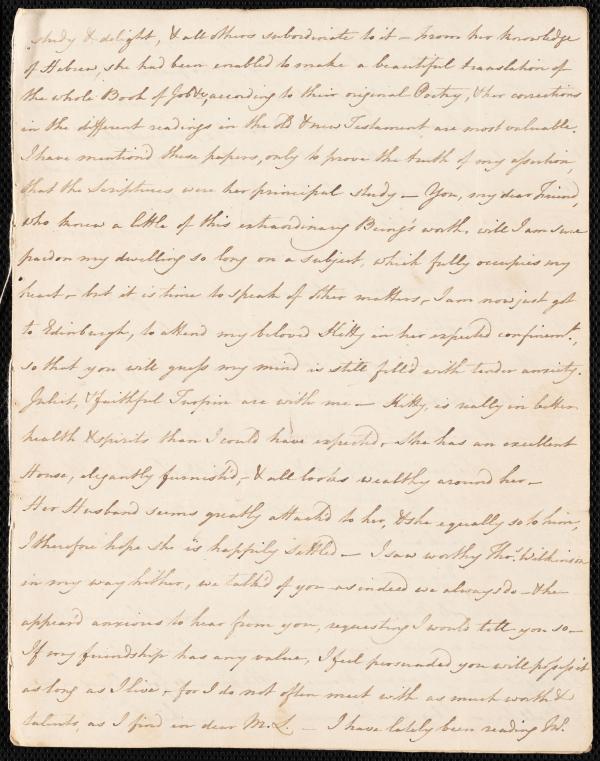 study & delight, & all others subordinate to it – From her knowledge
of Hebrew, she had been enabled to make a beautiful translation of
the whole Book of Job &c, according to their original Poetry, & her corrections
in the different readings in the old & new Testament are most valuable.
I have mention'd these papers, only to prove the truth of my assertion,
that the Scriptures were her principal study – You, my dear Friend,
who knew a little of this extraordinary Being's worth, will I am sure
pardon my dwelling so long on a subject, which fully occupies my
heart – but it is time to speak of other matters, I am now just got
to Edinburgh, to attend my beloved Kitty in her expected confinemt.,
so that you will guess my mind is still filled with tender anxiety.
Juliet, & faithful Turpin are with me – Kitty, is really in better
health & spirits than I could have expected, she has an excellent
House, elegantly furnish'd, – & all looks wealthy around her –
Her Husband seems greatly attach'd to her, & she equally so to him,
I therefore hope she is happily settled – I saw worthy Thos. Wilkinson
in my way hither, we talk'd of you as indeed we always do – & he
appear'd anxious to hear from you, requesting I would tell you so –
If my friendship has any value, I feel persuaded you will possess it
as long as I live – for I do not often meet with as much worth &
talents, as I find in dear M. L. – I have lately been reading